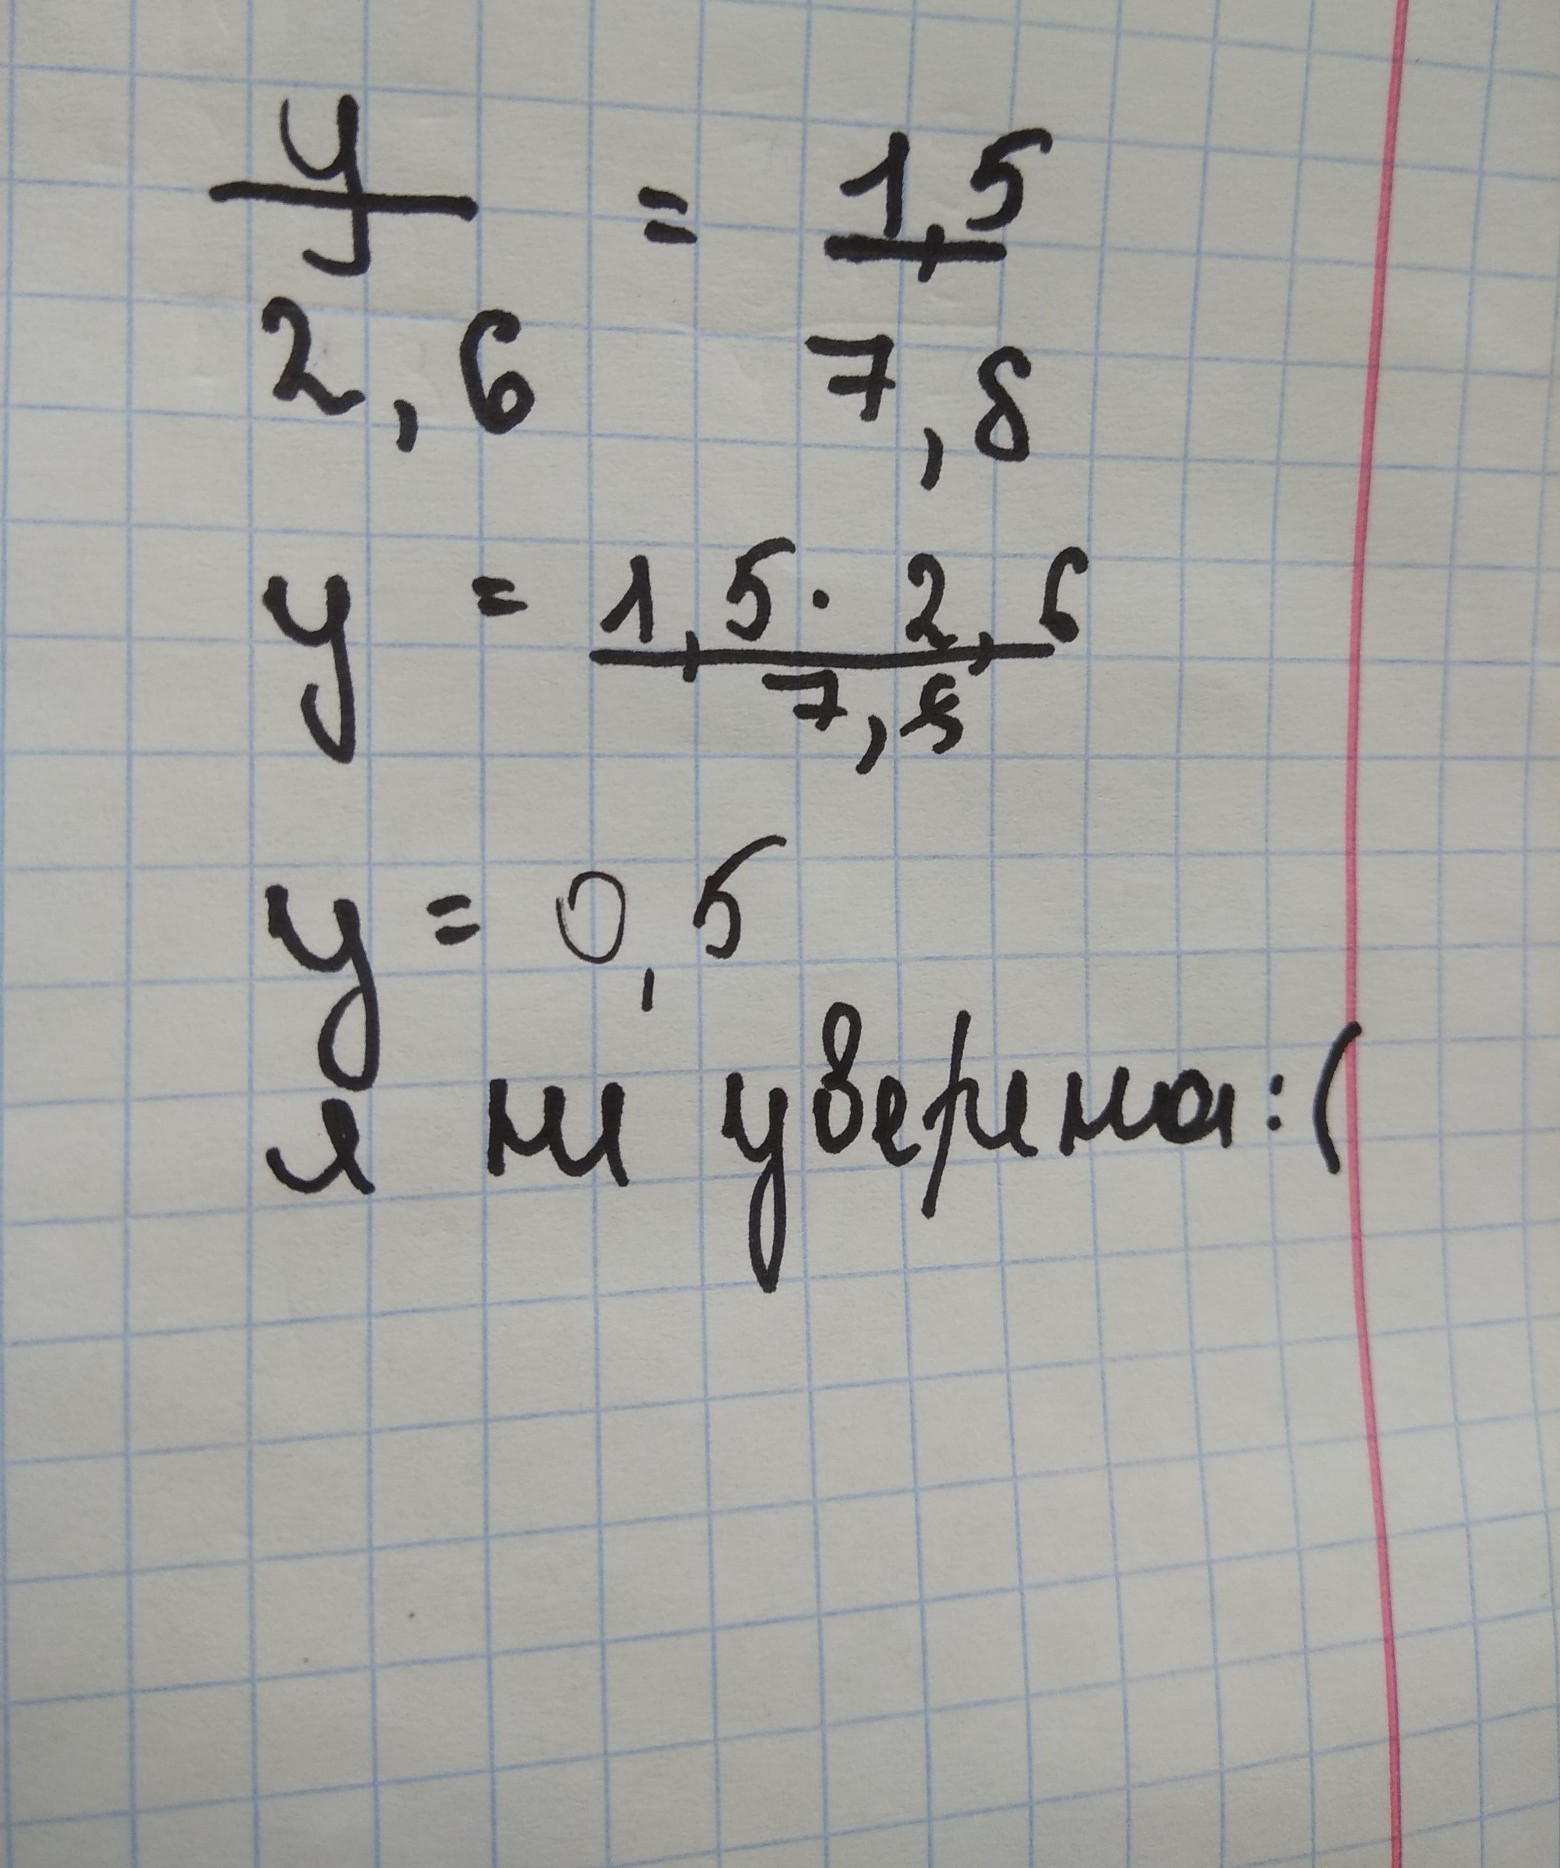 y/2,6 = 1,5/7,8
y = 1,5 · 2,6/7,8
y = 0,5
я не уверена :(